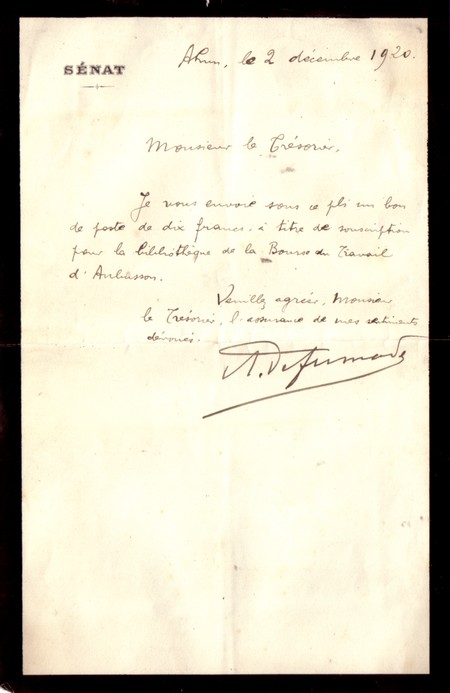 SÉNAT
Ahun, le 2 décembre 1920.
Monsieur le Trésorier,
Je vous envoie sous ce pli un bon
de poste de dix francs à titre de souscription
pour la bibliothèque de la Bourse du Travail
d'Aubusson.
Veuillez agréer, Monsieur
le Trésorier, l'assurance de mes sentiments
dévoués.
A. Defumade